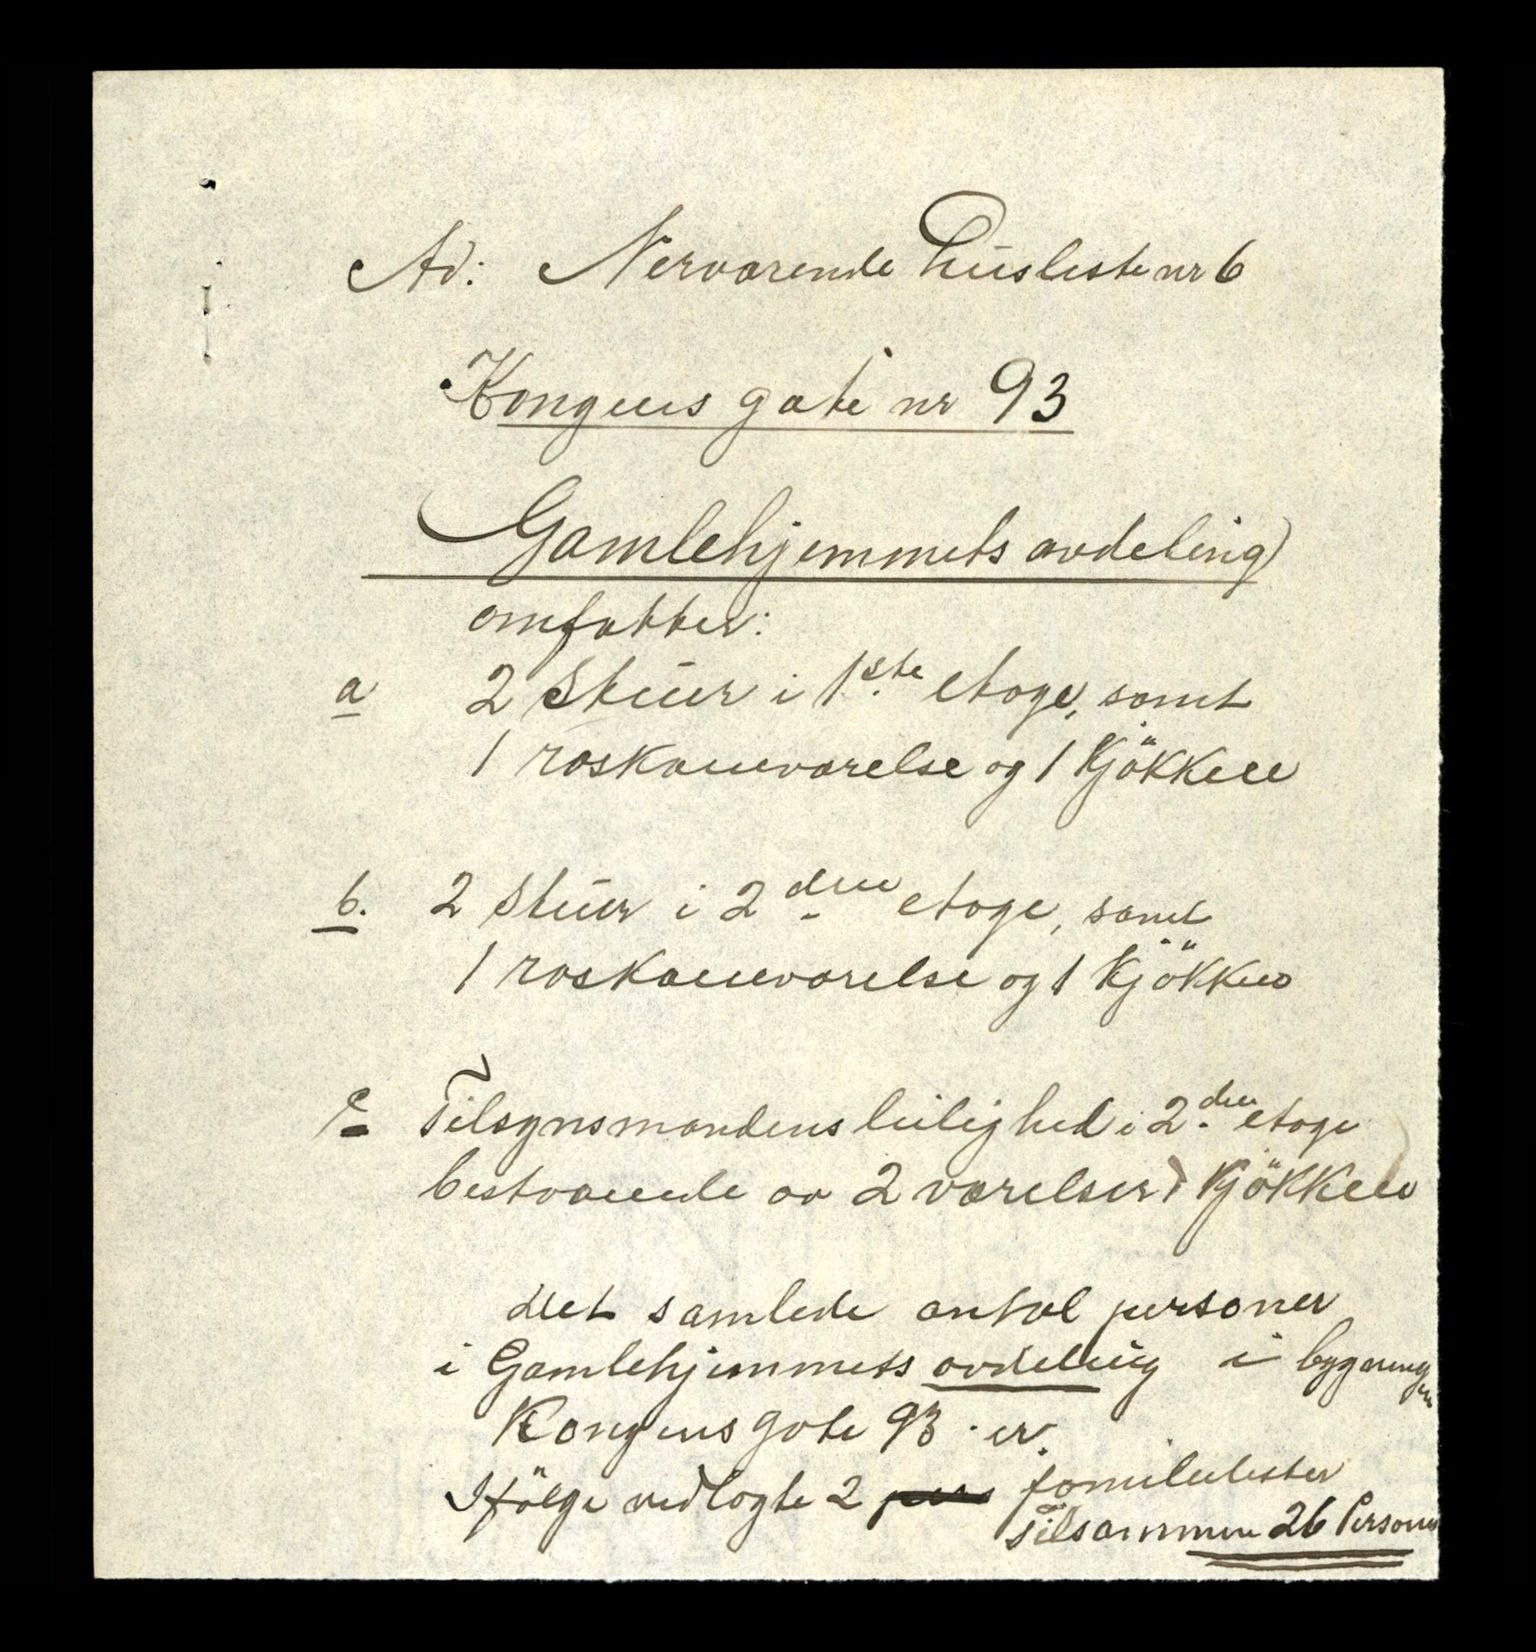 Ad: Nerværende Husliste nr 6
Kongens gate nr 93
(Gamlehjemmets avdeling)
omfatter:
a 2 Stuer i 1ste etage, samt
1 vaskeværelse og 1 Kjökken
b. 2 Stuer i 2den etage, samt
1 vaskeværelse og 1 Kjökken
c Tilsynsmandens leilighed i 2den etage
bestaaende av 2 værelser 1 Kjökken
Det samlede antal personer
i Gamlehjemmets avdeling i bygningen
Kongens gate 93 er.
Ifölge vedlagte 2 familielister
Tilsammen 26 Personer